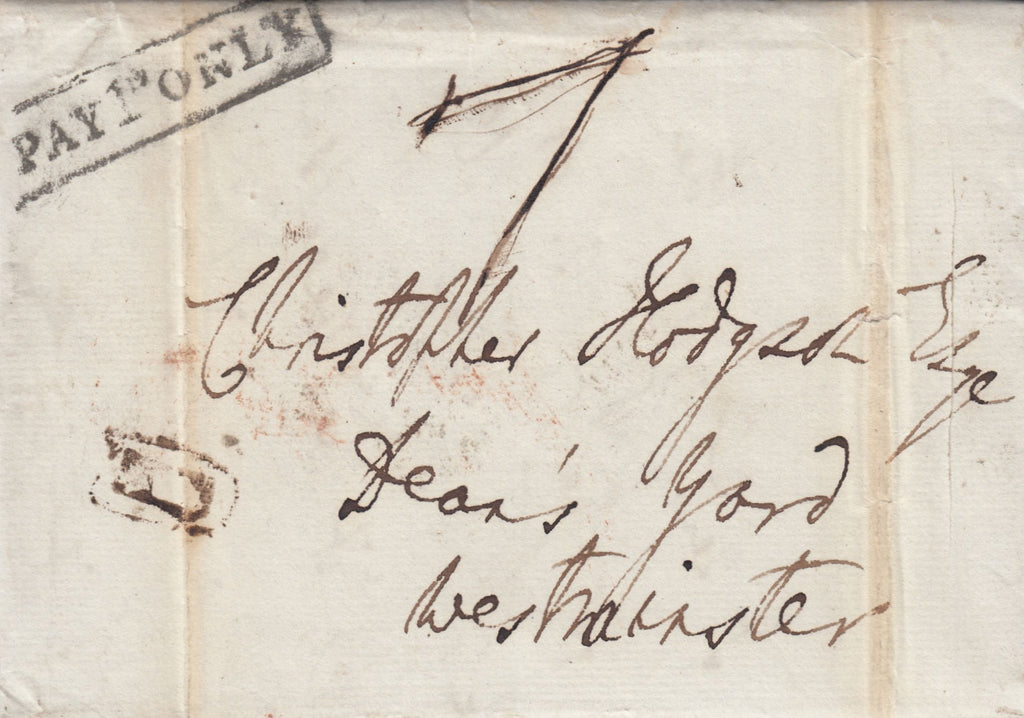 PAY 1D ONLY
7
Christopher Hodgson Esqe
L
Dean's Yard
Westminster